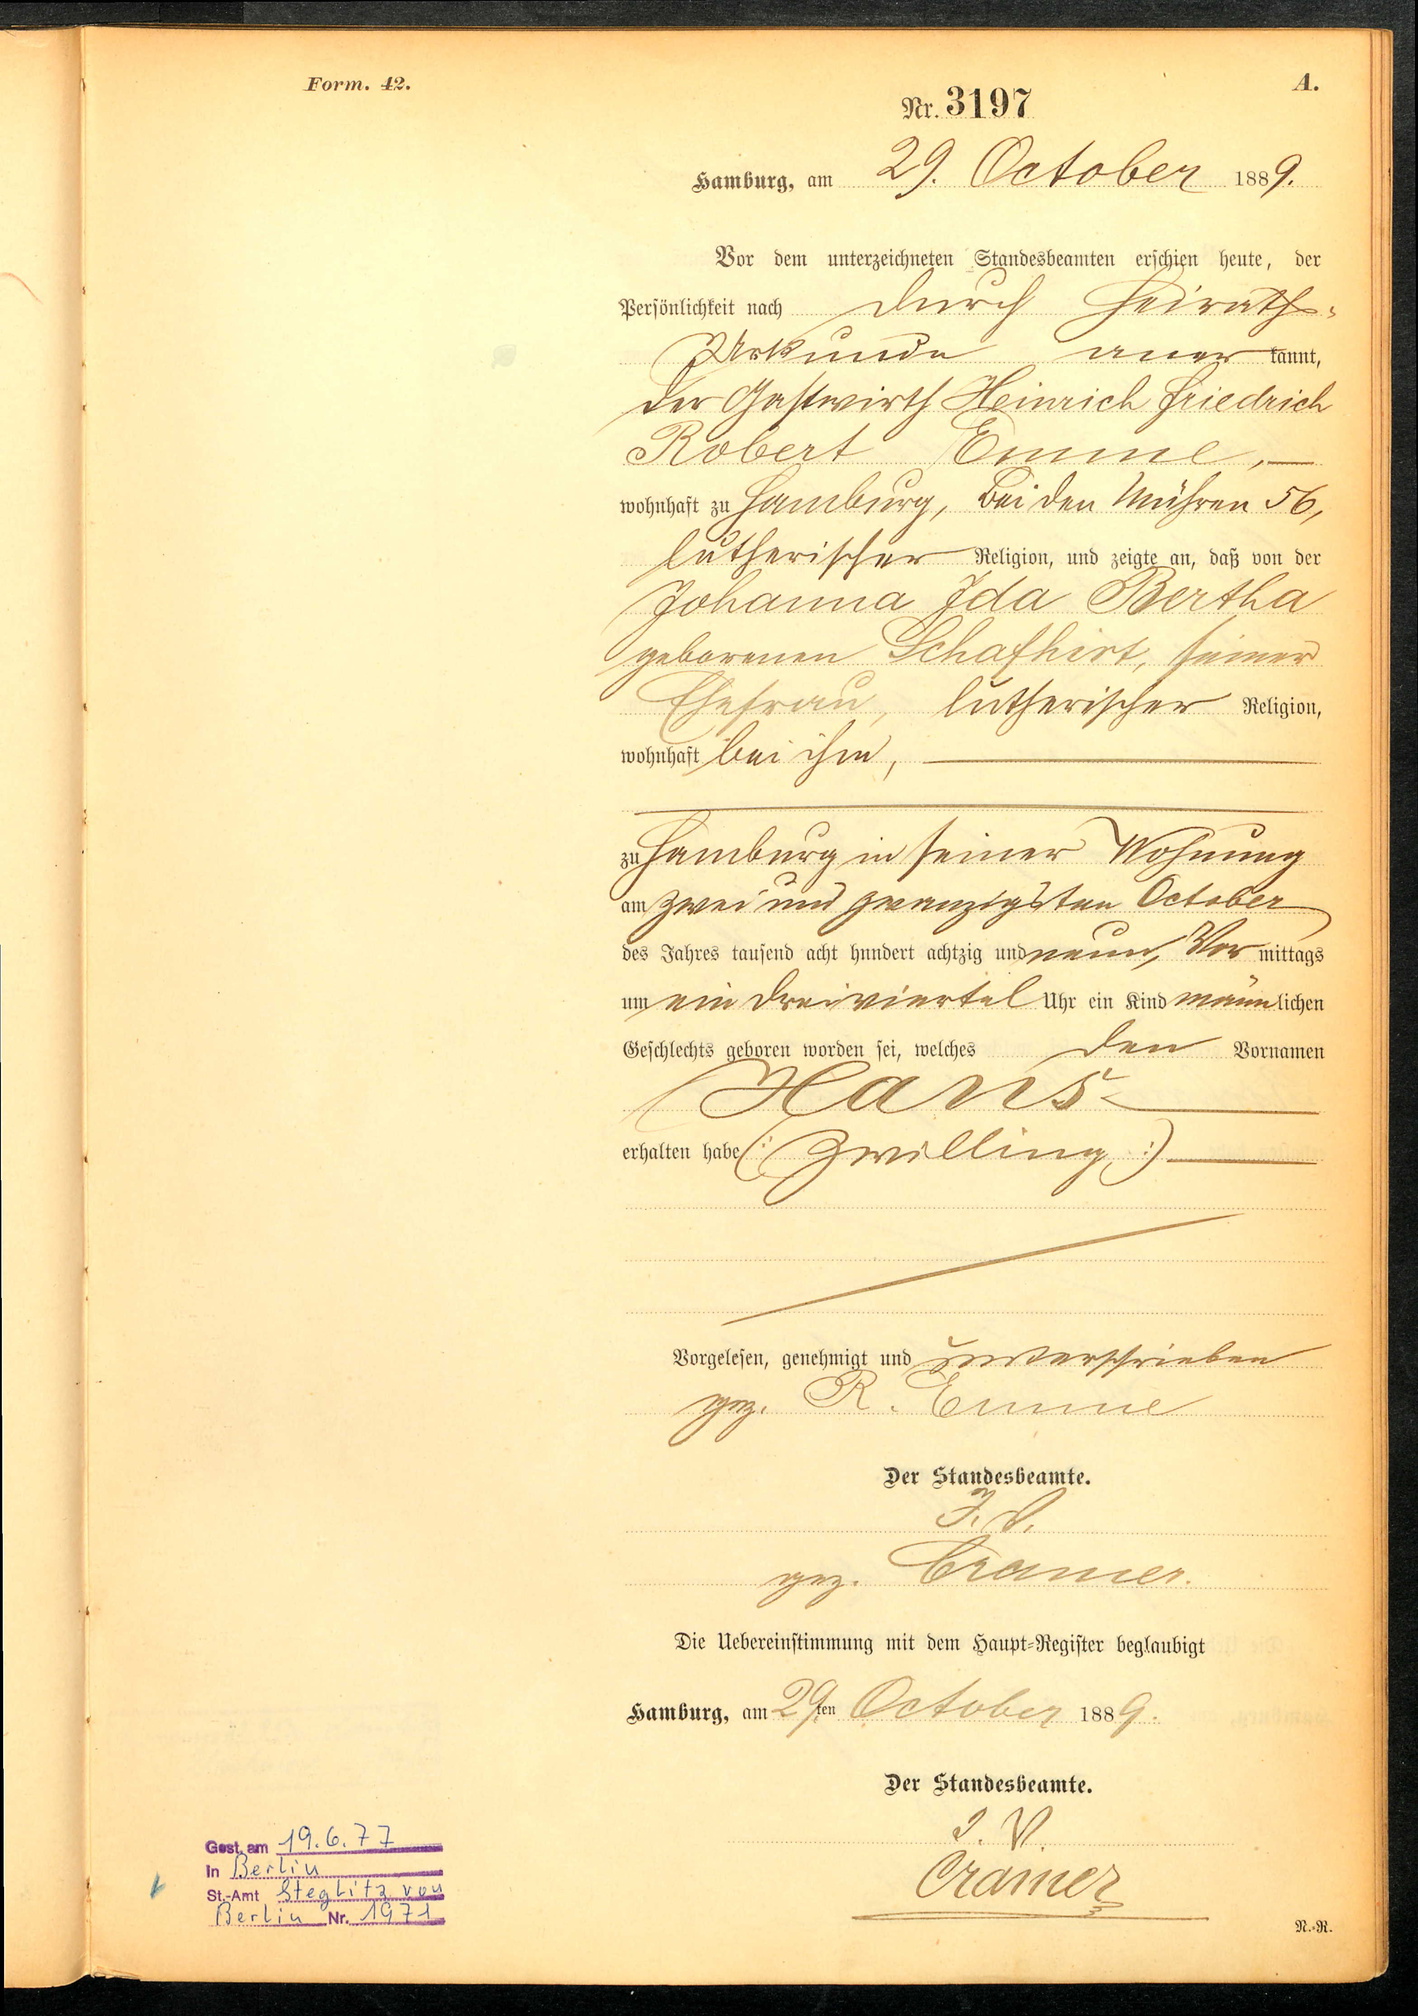 Form. 42.
A.
Nr. 3197
Hamburg, am 29. October 1889.
Vor dem unterzeichneten Standesbeamten erschien heute, der
Persönlichkeit nach durch Heiraths-
Urkunde aner kannt,
der Gastwirth Heinrich Friedrich
Robert Emme,
wohnhaft zu Hamburg, Bei den Mühren 56,
lutherischer Religion, und zeigte an, daß von der
Johanna Ida Bertha
geborenen Schafhirt, seiner
Ehefrau, lutherischer Religion,
wohnhaft bei ihm,
zu Hamburg in seiner Wohnung
am zwei und zwanzigsten October
des Jahres tausend acht hundert achtzig und neun, Vor mittags
um ein dreiviertel Uhr ein Kind männlichen
Geschlechts geboren worden sei, welches den Vornamen
Hans
erhalten habe (: Zwilling :)
Vorgelesen, genehmigt und unterschrieben
gez. R. Emme
Der Standesbeamte.
J. V.
gez. Cramer.
Die Uebereinstimmung mit dem Haupt-Register beglaubigt
Hamburg, am 29ten October 1889.
Der Standesbeamte.
J. V.
Cramer
Gest. am 19.6.77
In Berlin
St.-Amt Steglitz von
Berlin Nr. 1971
N.-R.